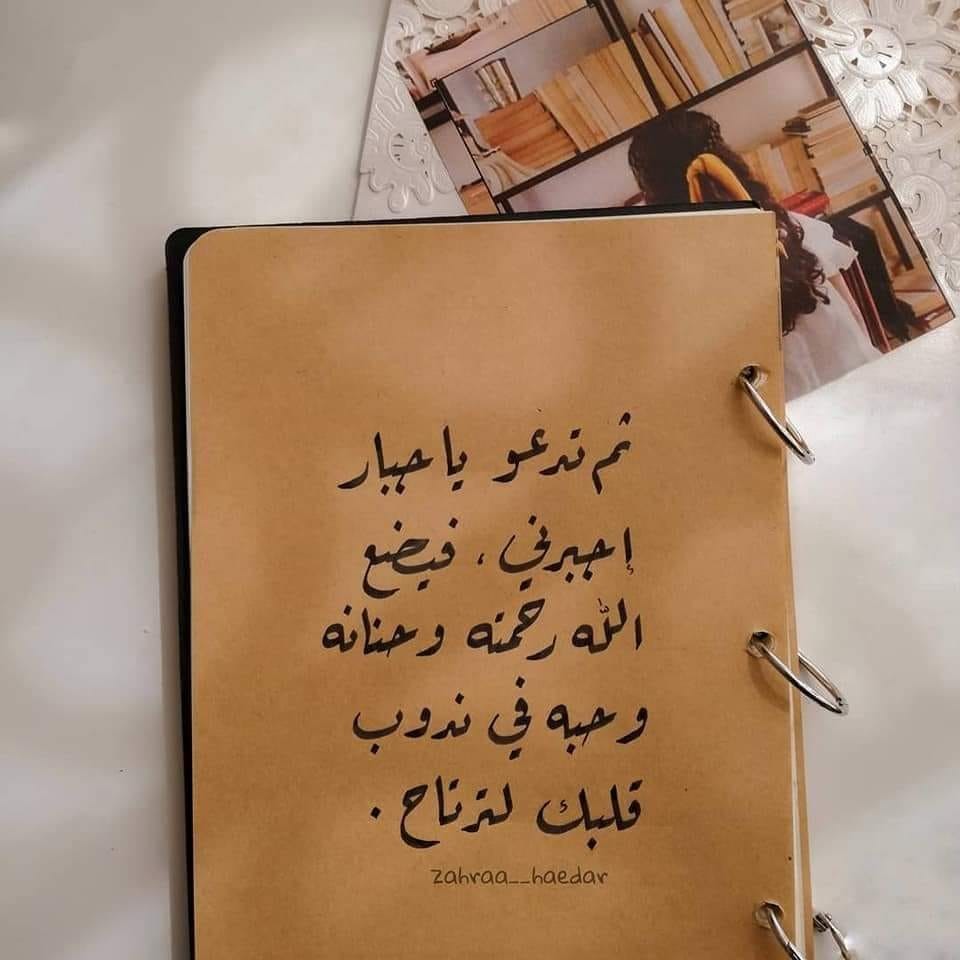 ثم تدعو يا جبار
إجبرني ، فيضع
الله رحمته وحنانه
وحبه في ندوب
قلبك لترتاح .
zahraa__haedar